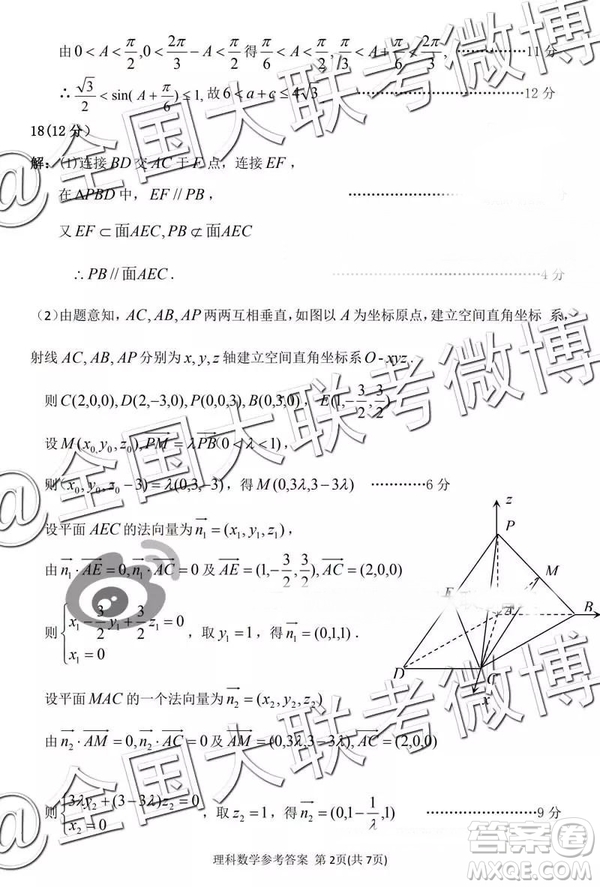 由 0 < A < π/2, 0 < 2π/3 − A < π/2 得 π/6 < A < π/2, π/3 < A + π/6 < 2π/3, ……………11 分
∴ √3/2 < sin(A + π/6) ≤ 1, 故 6 < a + c ≤ 4√3 ……………………12 分
18(12 分)
解: (1)连接 BD 交 AC 于 F 点, 连接 EF,
在 ΔPBD 中, EF // PB, ……………………
又 EF ⊂ 面AEC, PB ⊄ 面AEC
∴ PB // 面AEC. ……………………4 分
(2)由题意知, AC, AB, AP 两两互相垂直, 如图以 A 为坐标原点, 建立空间直角坐标 系,
射线 AC, AB, AP 分别为 x, y, z 轴建立空间直角坐标系 O - xyz.
则 C(2,0,0), D(2,−3,0), P(0,0,3), B(0,3,0), E(1,−3/2,3/2)
设 M(x₀,y₀,z₀), PM = λPB(0 < λ < 1),
则 (x₀, y₀, z₀ − 3) = λ(0,3,−3), 得 M(0,3λ,3 − 3λ) …………6 分
设平面 AEC 的法向量为 n₁ = (x₁, y₁, z₁),
由 n₁ · AE = 0, n₁ · AC = 0 及 AE = (1,−3/2,3/2), AC = (2,0,0)
则 { x₁ − 3/2 y₁ + 3/2 z₁ = 0
x₁ = 0 , 取 y₁ = 1, 得 n₁ = (0,1,1).
z
P
E
M
A
B
D
C
x
设平面 MAC 的一个法向量为 n₂ = (x₂, y₂, z₂)
由 n₂ · AM = 0, n₂ · AC = 0 及 AM = (0,3λ,3 − 3λ), AC = (2,0,0)
则 { 3λy₂ + (3 − 3λ)z₂ = 0 , 取 z₂ = 1, 得 n₂ = (0,1 − 1/λ,1) ……………9 分
理科数学参考答案 第 2页(共 7页)
@全国大联考微博
@全国大联考微博
@全国大联考微博
答案圈
MXQE.COM